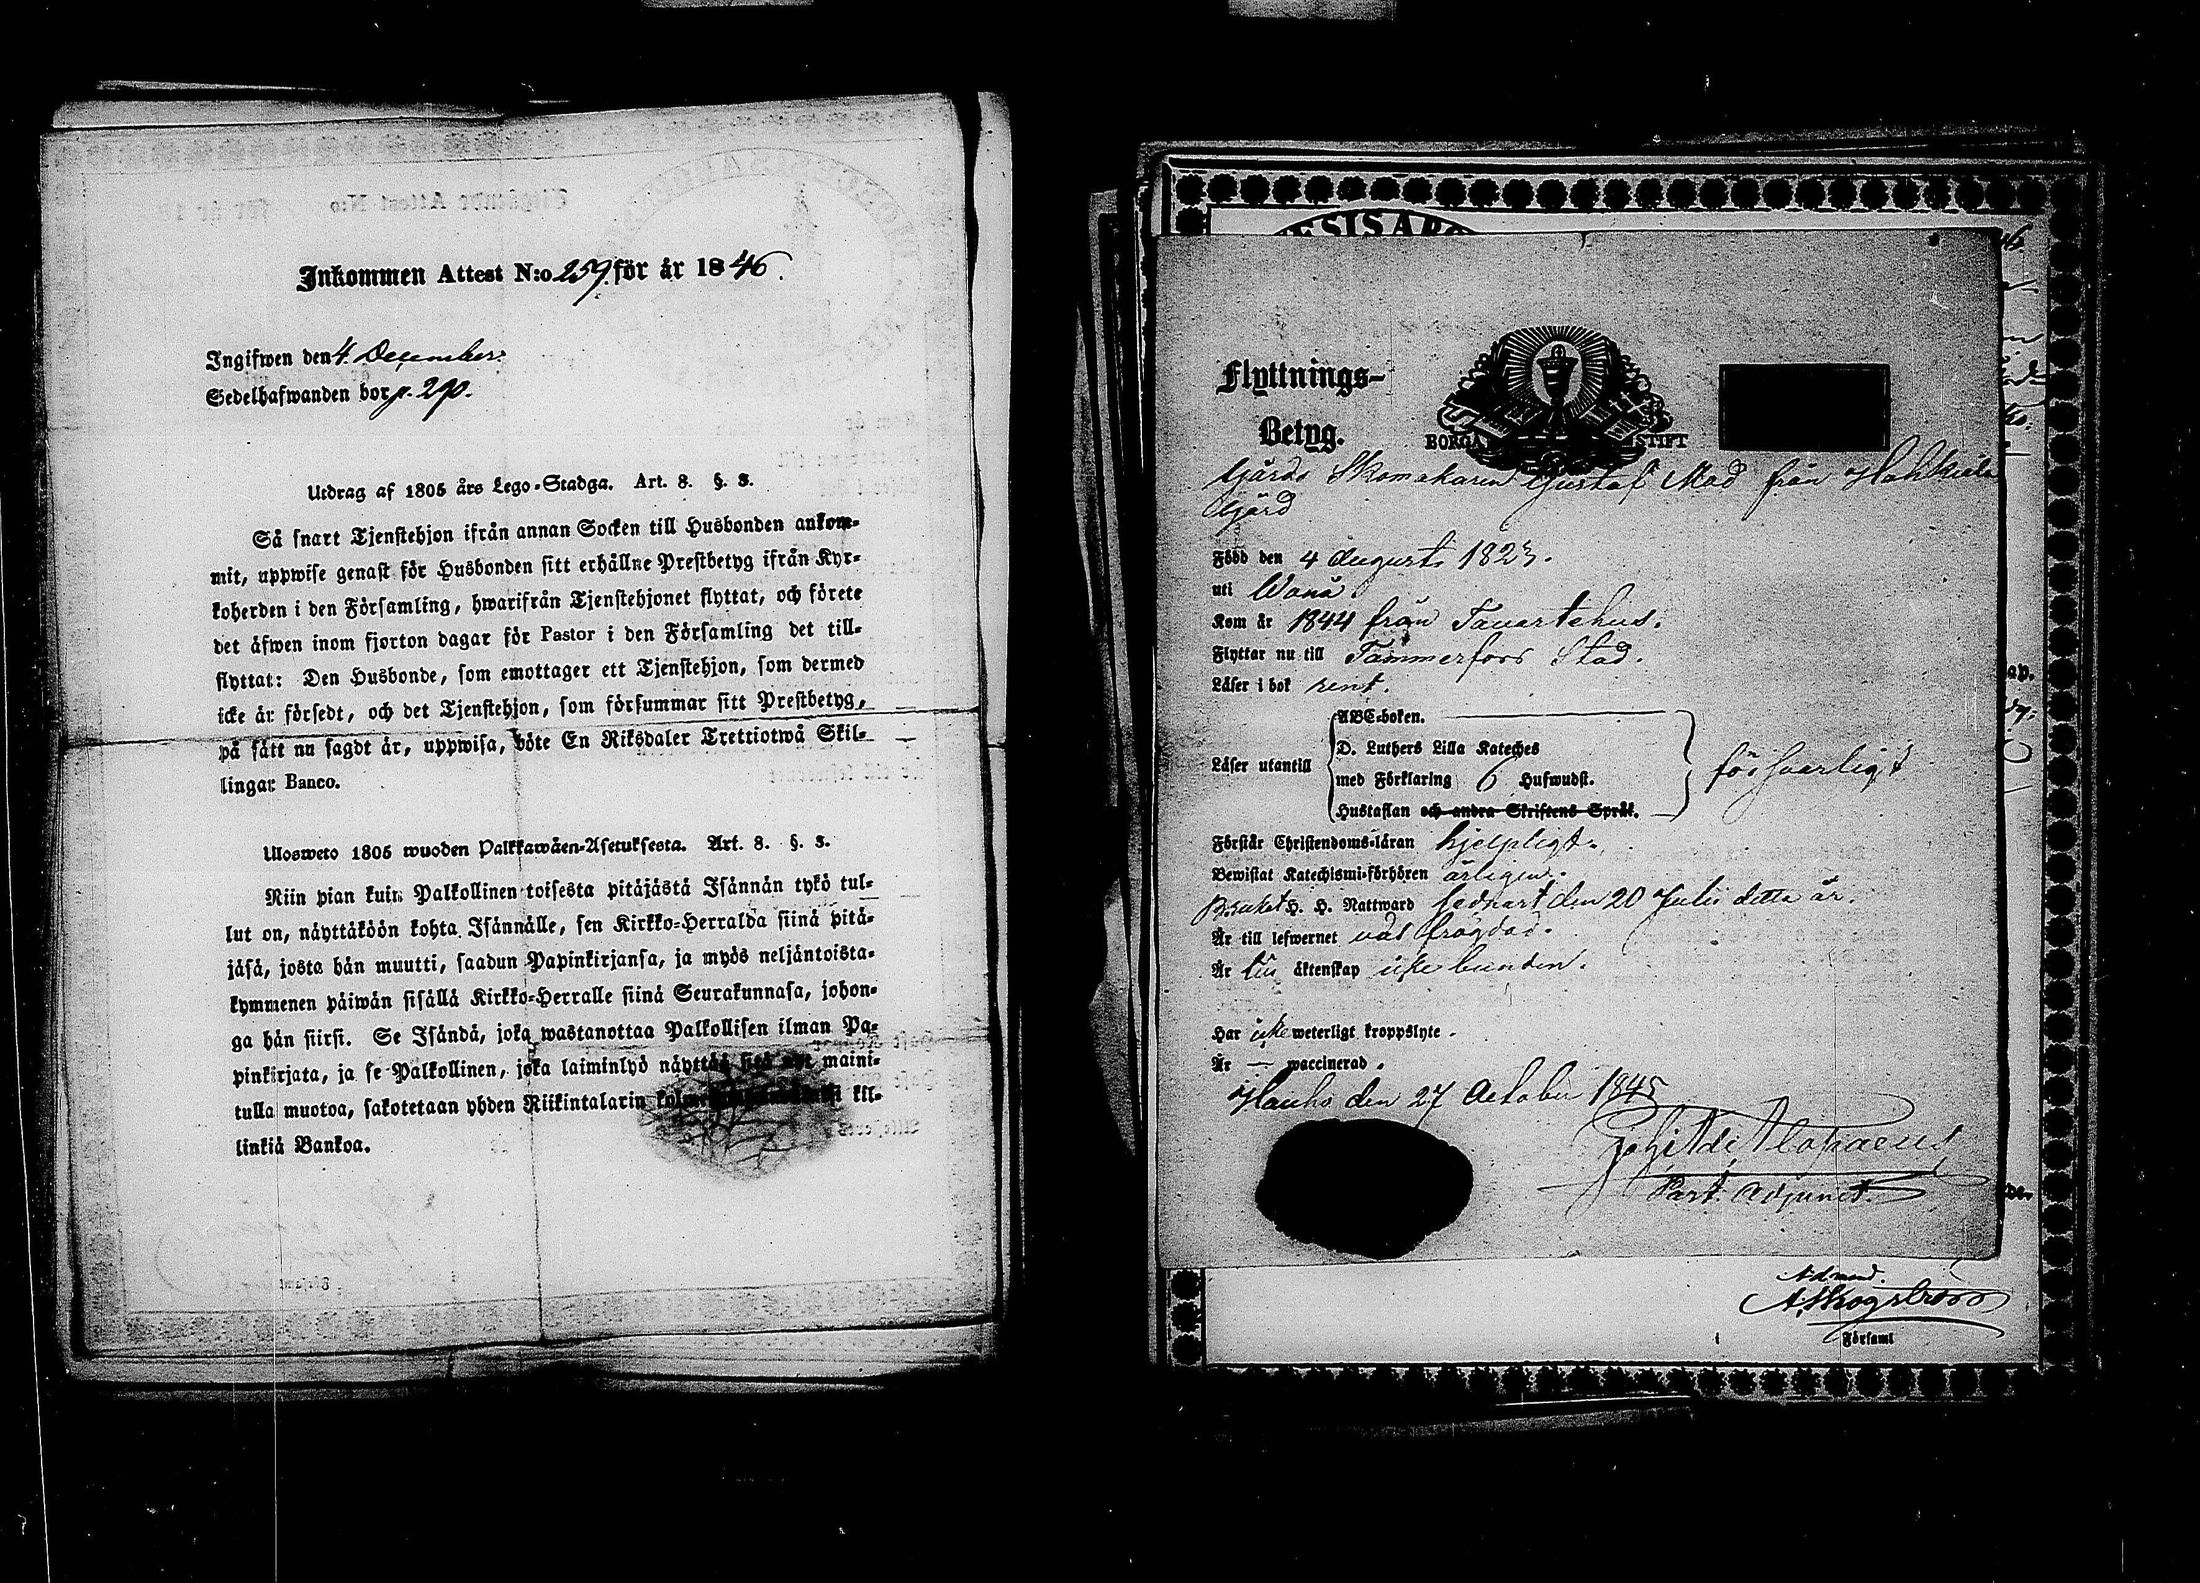 Inkommen Attest N:o 259 för år 1846.
Ingifwen den 4 December.
Sedelhafwanden bor p. 290.
Utdrag af 1805 års Lego-Stadga. Art. 8. §. 3.
Så snart Tjenstehjon ifrån annan Socken till Husbonden ankom-
mit, uppwise genast för Husbonden sitt erhållne Prestbetyg ifrån Kyr-
koherden i den Församling, hwarifrån Tjenstehjonet flyttat, och förete
det äfwen inom fjorton dagar för Pastor i den Församling det till-
flyttat: Den Husbonde, som emottager ett Tjenstehjon, som dermed
icke är försedt, och det Tjenstehjon, som försummar sitt Prestbetyg,
på sätt nu sagdt är, uppwisa, böte En Riksdaler Trettiotwå Skil-
lingar Banco.
Ulosweto 1805 wuoden Palkkawäen-Asetuksesta. Art. 8. §. 3.
Niin pian kuin Palkollinen toisesta pitäjästä Isännän tykö tul-
lut on, näyttäköön kohta Isännälle, sen Kirkko-Herralda siinä pitä-
jäsä, josta hän muutti, saadun Papinkirjansa, ja myös neljäntoista-
kymmenen päiwän sisällä Kirkko-Herralle siinä Seurakunnasa, johon-
ga hän siirsi. Se Isändä, joka wastanottaa Palkollisen ilman Pa-
pinkirjata, ja se Palkollinen, joka laiminlyö näyttää sitä nyt maini-
tulla muotoa, sakotetaan yhden Riikintalarin kil-
linkiä Bankoa.
Flyttnings-
Betyg.
BORGÅ STIFT
Gårds Skomakaren Gustaf Mad från Hahkiala
Gård
Född den 4 Augusti 1823.
uti Wånå.
Kom år 1844 från Tavastehus.
Flyttar nu till Tammerfors Stad.
Läser i bok rent.
Läser utantill
ABC-boken.
D. Luthers Lilla Kateches
med Förklaring 6 Hufwudst.
Hustaflan och andra Skriftens Språk.
försvarligt
Förstår Christendoms-läran hjelpligt.
Bewistat Katechismi-förhören årligen.
Brukat H. H. Nattward sednast den 20 Julii detta år.
Är till lefwernet väl frägdad.
Är till äktenskap icke bunden.
Har icke weterligt kroppslyte.
Är — waccinerad.
Hauho den 27 October 1845
Past. Adjunct.
A. Skogström
Församl